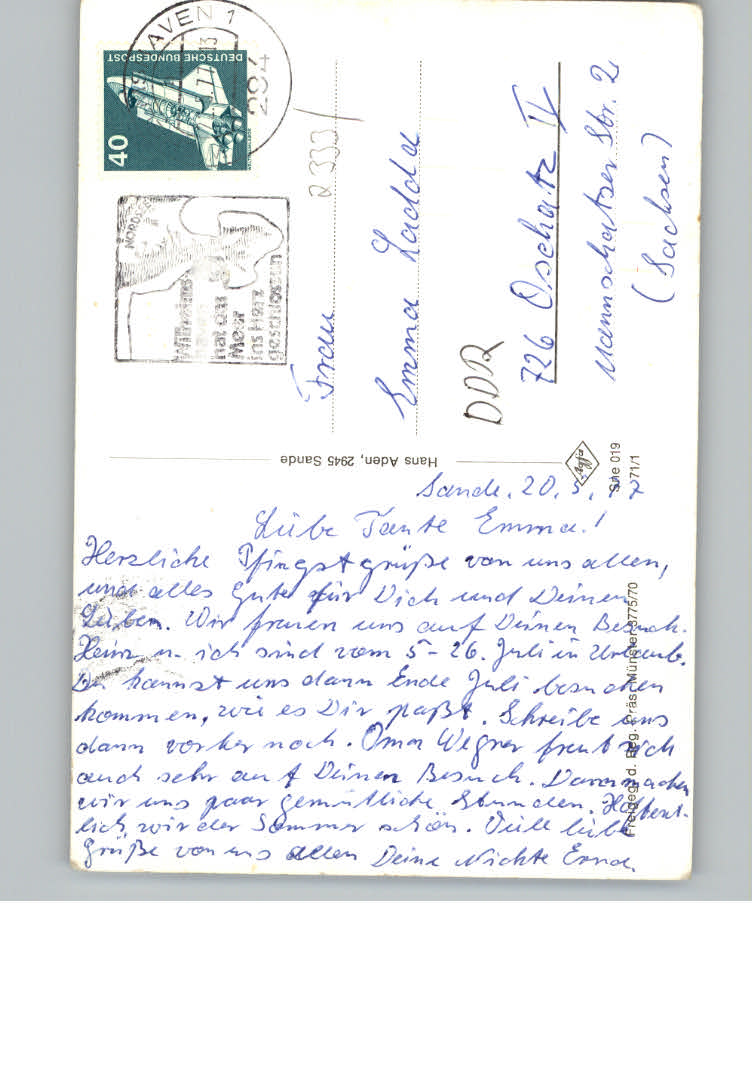 AVEN 1
294
DEUTSCHE BUNDESPOST
40
NORDSEE
hat das
Meer
ins Herz
geschlossen
2333
Frau
Emma Ladda
DDR
726 Oschatz IV
Mannschatzer Str. 2
(Sachsen)
Hans Aden, 2945 Sande
Agfa
Sne 019
71/1
Freigeg. d. Reg. Präs. Münster 3775/70
Sande, 20.5.77
Liebe Tante Emma!
Herzliche Pfingstgrüße von uns allen,
und alles Gute für Dich und Deinen
Lieben. Wir freuen uns auf Deinen Besuch.
Heinz u. ich sind vom 5-26. Juli in Urlaub.
Du kannst uns dann Ende Juli besuchen
kommen, wie es Dir paßt. Schreibe uns
dann vorher noch. Oma Wegner freut sich
auch sehr auf Deinen Besuch. Dann machen
wir uns paar gemütliche Stunden. Hoffent-
lich wir der Sommer schön. Viele liebe
Grüße von uns allen Deine Nichte Erna